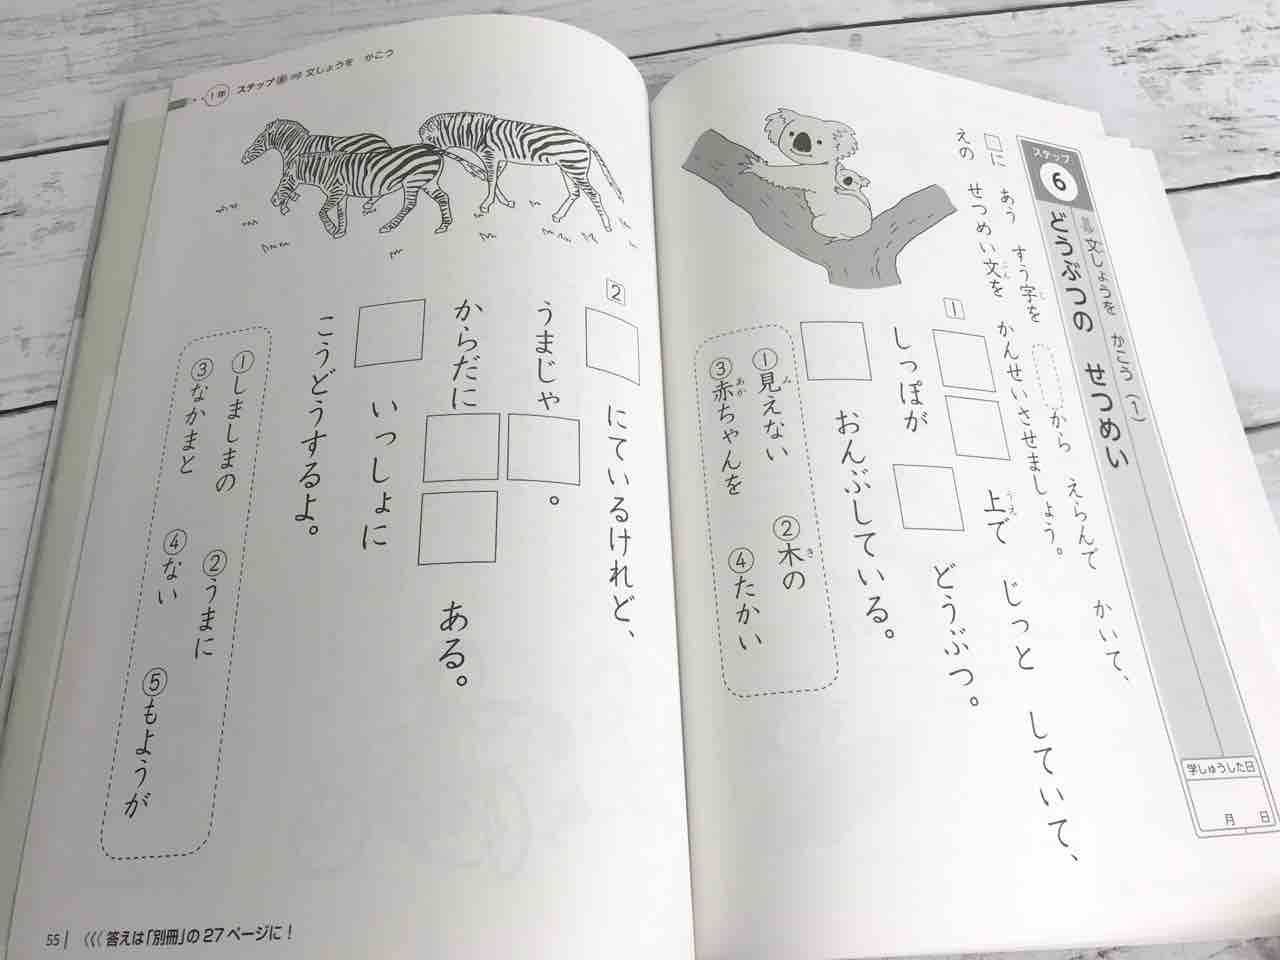 ステップ
6
文しょうを かこう(1)
どうぶつの せつめい
学しゅうした日
月 日
□に あう すう字を から えらんで かいて、
じ
えの せつめい文を かんせいさせましょう。
ぶん
1
□□上で じっと していて、
うえ
しっぽが□どうぶつ。
□おんぶしている。
①見えない ②木の
み き
③赤ちゃんを ④たかい
あか
1年 ステップ6 文しょうを かこう
2
□にているけれど、
うまじゃ□。
からだに□□ある。
□いっしょに
こうどうするよ。
①しましまの ②うまに
③なかまと ④ない ⑤もようが
55 〈〈〈 答えは「別冊」の27ページに!